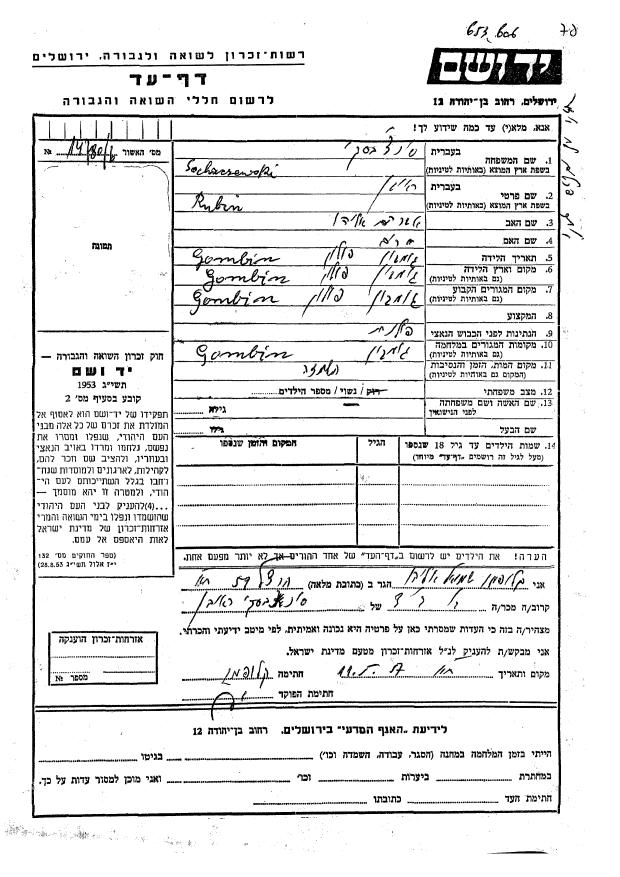 78
רשות-זכרון לשואה ולגבורה, ירושלים
דף-עד
לרשום חללי השואה והגבורה
יד ושם
ירושלים, רחוב בן-יהודה 12
אנא, מלא(י) עד כמה שידוע לך!
מס׳ האשור
№
תמונה
1. שם המשפחה
בעברית
בשפת ארץ המוצא (באותיות לטיניות)
Sochaczewski
2. שם פרטי
בעברית
בשפת ארץ המוצא (באותיות לטיניות)
Rubin
3. שם האב
4. שם האם
5. תאריך הלידה
6. מקום וארץ הלידה גומבין פולין Gombin
(גם באותיות לטיניות)
7. מקום המגורים הקבוע גומבין פולין Gombin
(גם באותיות לטיניות)
Gombin גומבין פולין
8. המקצוע
9. הנתינות לפני הכבוש הנאצי פולנית
10. מקומות המגורים במלחמה גומבין Gombin
(גם באותיות לטיניות)
11. מקום המות, הזמן והנסיבות
(המקום גם באותיות לטיניות)
12. מצב משפחתי רוק/ נשוי/ מספר הילדים
13. שם האשה ושם משפחתה
לפני הנישואין
גילה
שם הבעל
גילו
14. שמות הילדים עד גיל 18 שנספו
(מעל לגיל זה רושמים "דף-עד" מיוחד)
הגיל
המקום והזמן שנספו
חוק זכרון השואה והגבורה —
יד ושם
תשי״ג 1953
קובע בסעיף מס׳ 2
תפקידו של יד-ושם הוא לאסוף אל
המולדת את זכרם של כל אלה מבני
העם היהודי, שנפלו ומסרו את
נפשם, נלחמו ומרדו באויב הנאצי
ובעוזריו, ולהציב שם וזכר להם,
לקהילות, לארגונים ולמוסדות שנח-
רבו בגלל השתייכותם לעם הי-
הודי, ולמטרה זו יהא מוסמך —
...(4)להעניק לבני העם היהודי
שהושמדו ונפלו בימי השואה והמרי
אזרחות-זכרון של מדינת ישראל
לאות היאספם אל עמם.
(ספר החוקים מס׳ 132
י״ז אלול תשי״ג 28.8.53)
הערה! את הילדים יש לרשום ב"דף-העד" של אחד ההורים אך לא יותר מפעם אחת.
אני הגר ב (כתובת מלאה)
קרוב/ה מכר/ה של
מצהיר/ה בזה כי העדות שמסרתי כאן על פרטיה היא נכונה ואמיתית, לפי מיטב ידיעתי והכרתי.
אני מבקש/ת להעניק לנ״ל אזרחות-זכרון מטעם מדינת ישראל.
מקום ותאריך חתימה
חתימת הפוקד
אזרחות-זכרון הוענקה
מספר №
לידיעת "האגף המדעי" בירושלים, רחוב בן-יהודה 12
הייתי בזמן המלחמה במחנה (הסגר, עבודה, השמדה וכו׳) בגיטו
במחתרת ביערות וכו׳ ואני מוכן למסור עדות על כך.
חתימת העד כתובתו